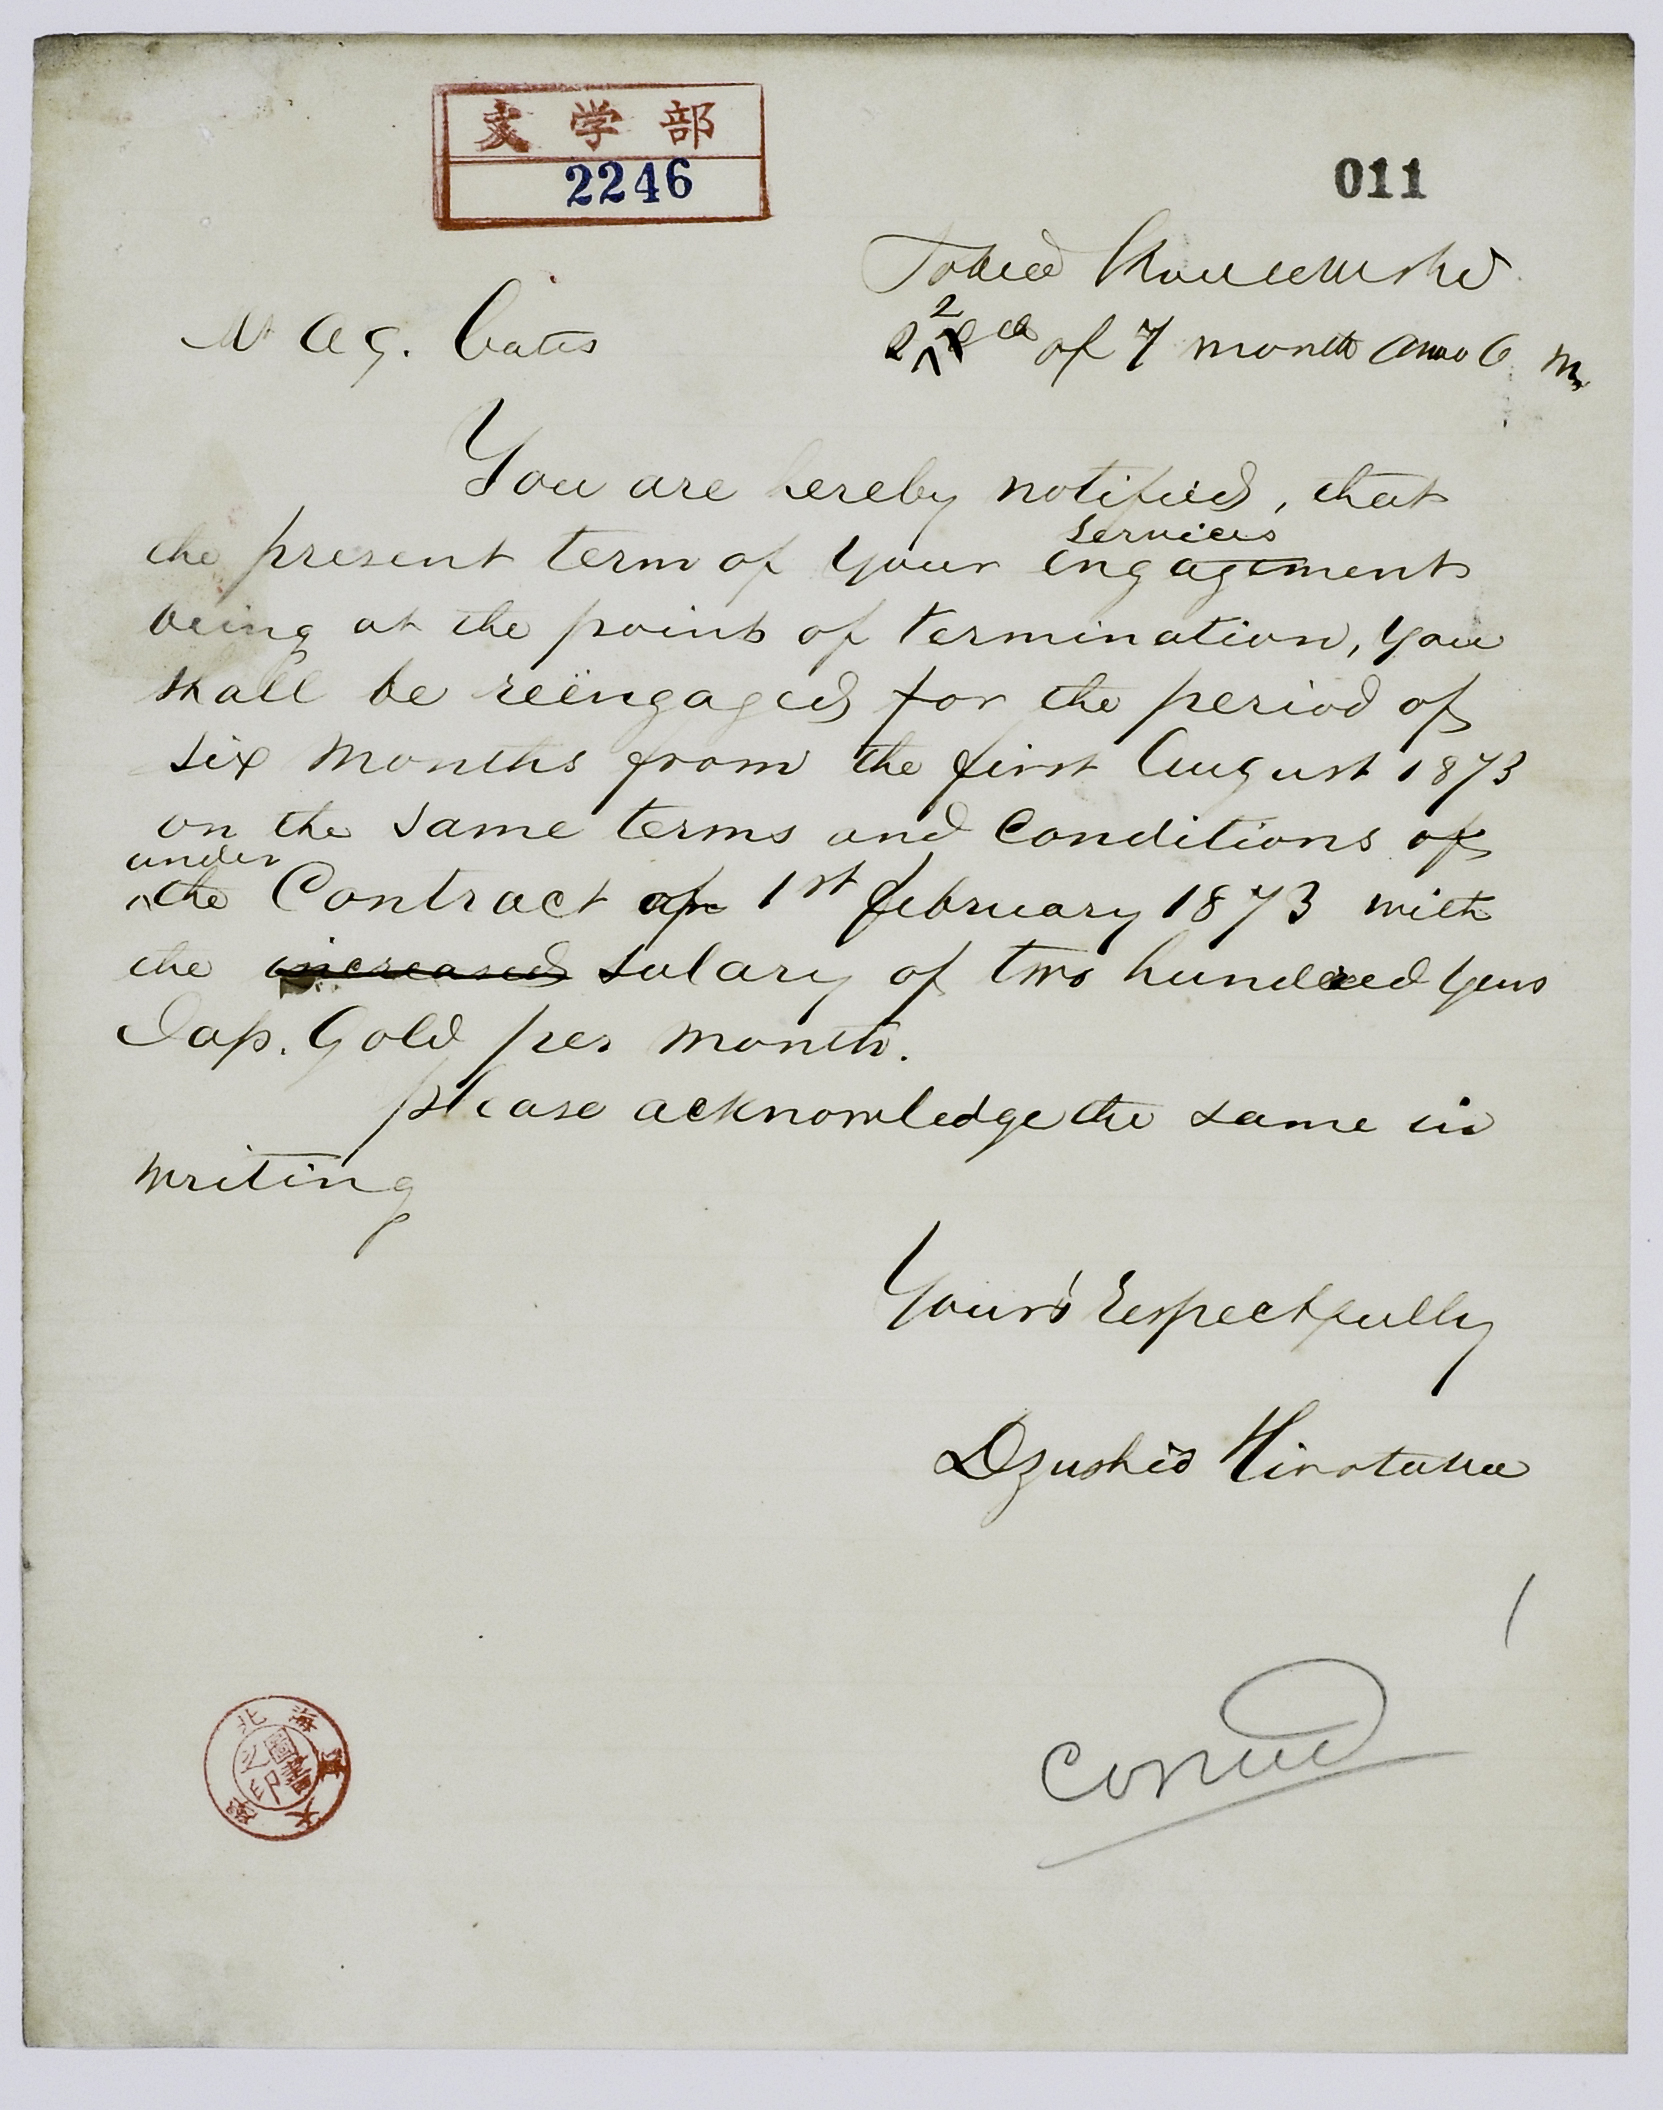 文学部
2246
011
Tokio Kaitakushi
22 of 7 month Anno 6 M
Mr A G. Cates
You are hereby notified, that
services
the present term of your engagement
being at the point of termination, you
shall be reëngaged for the period of
six months from the first August 1873
on the same terms and conditions of
under
the Contract of 1st february 1873 with
the increased salary of two hundred yens
Jap. Gold per month.
please acknowledge the same in
writing
Your's respectfully
Dzushio Hirotake
北海道大学
圖書之印